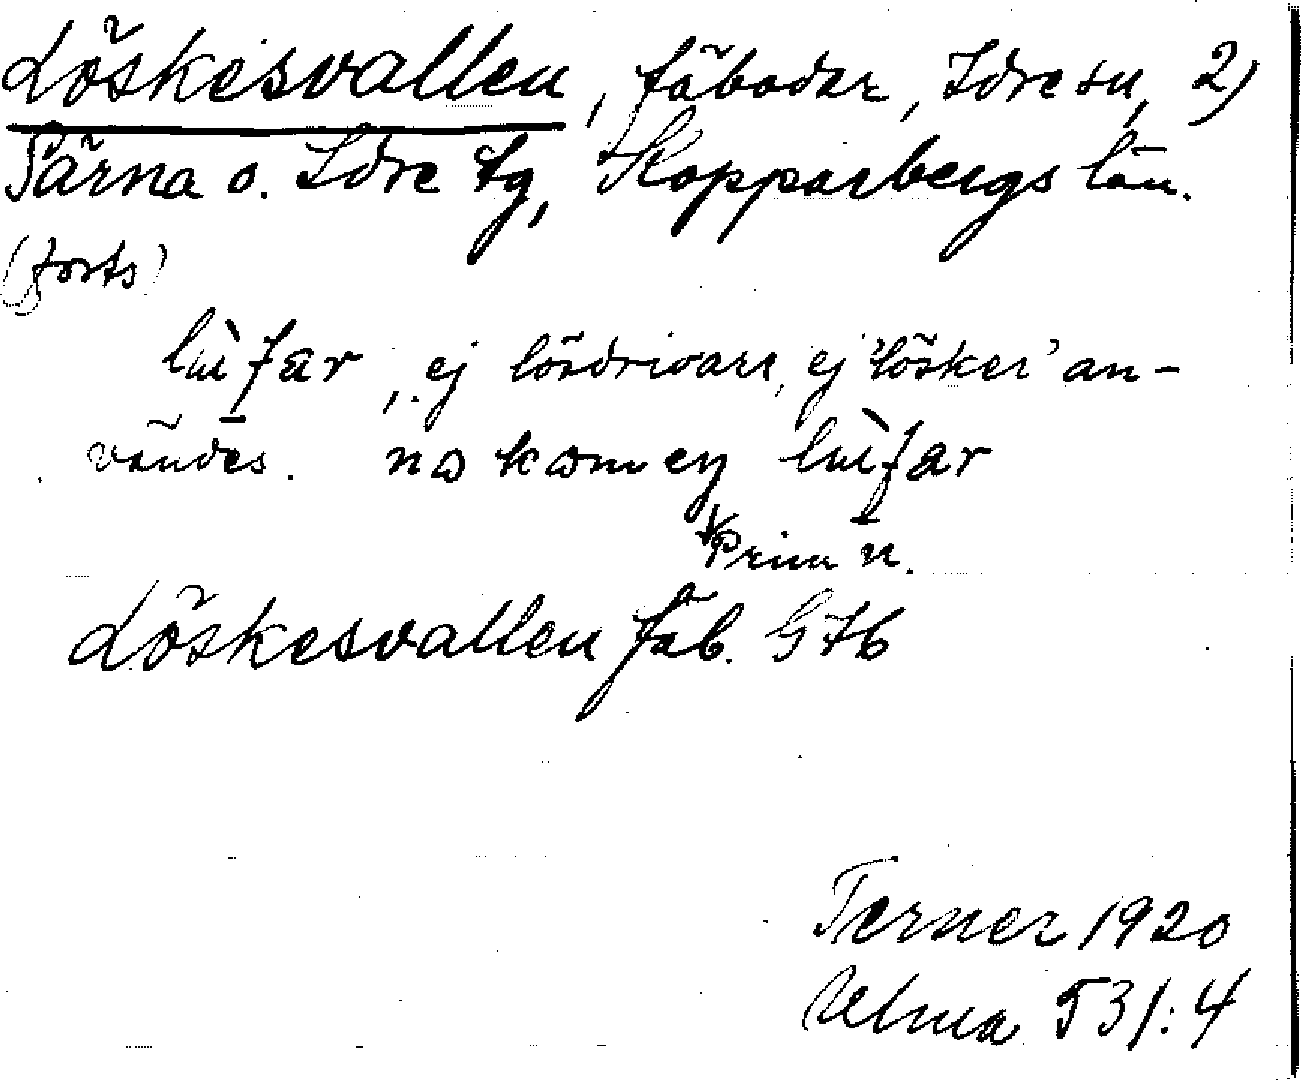 Löskesvallen, fäbodar, Idre sn, 2)
Särna o. Idre tg, Kopparbergs län.
(forts)
lùfar, ej lösdrivare, ej 'lösker' an-
vändes. nɷ kɷm eŋ lùfar
Prim n.
Löskesvallen fäb. Gtb
Terner 1920
Ulma 531:4